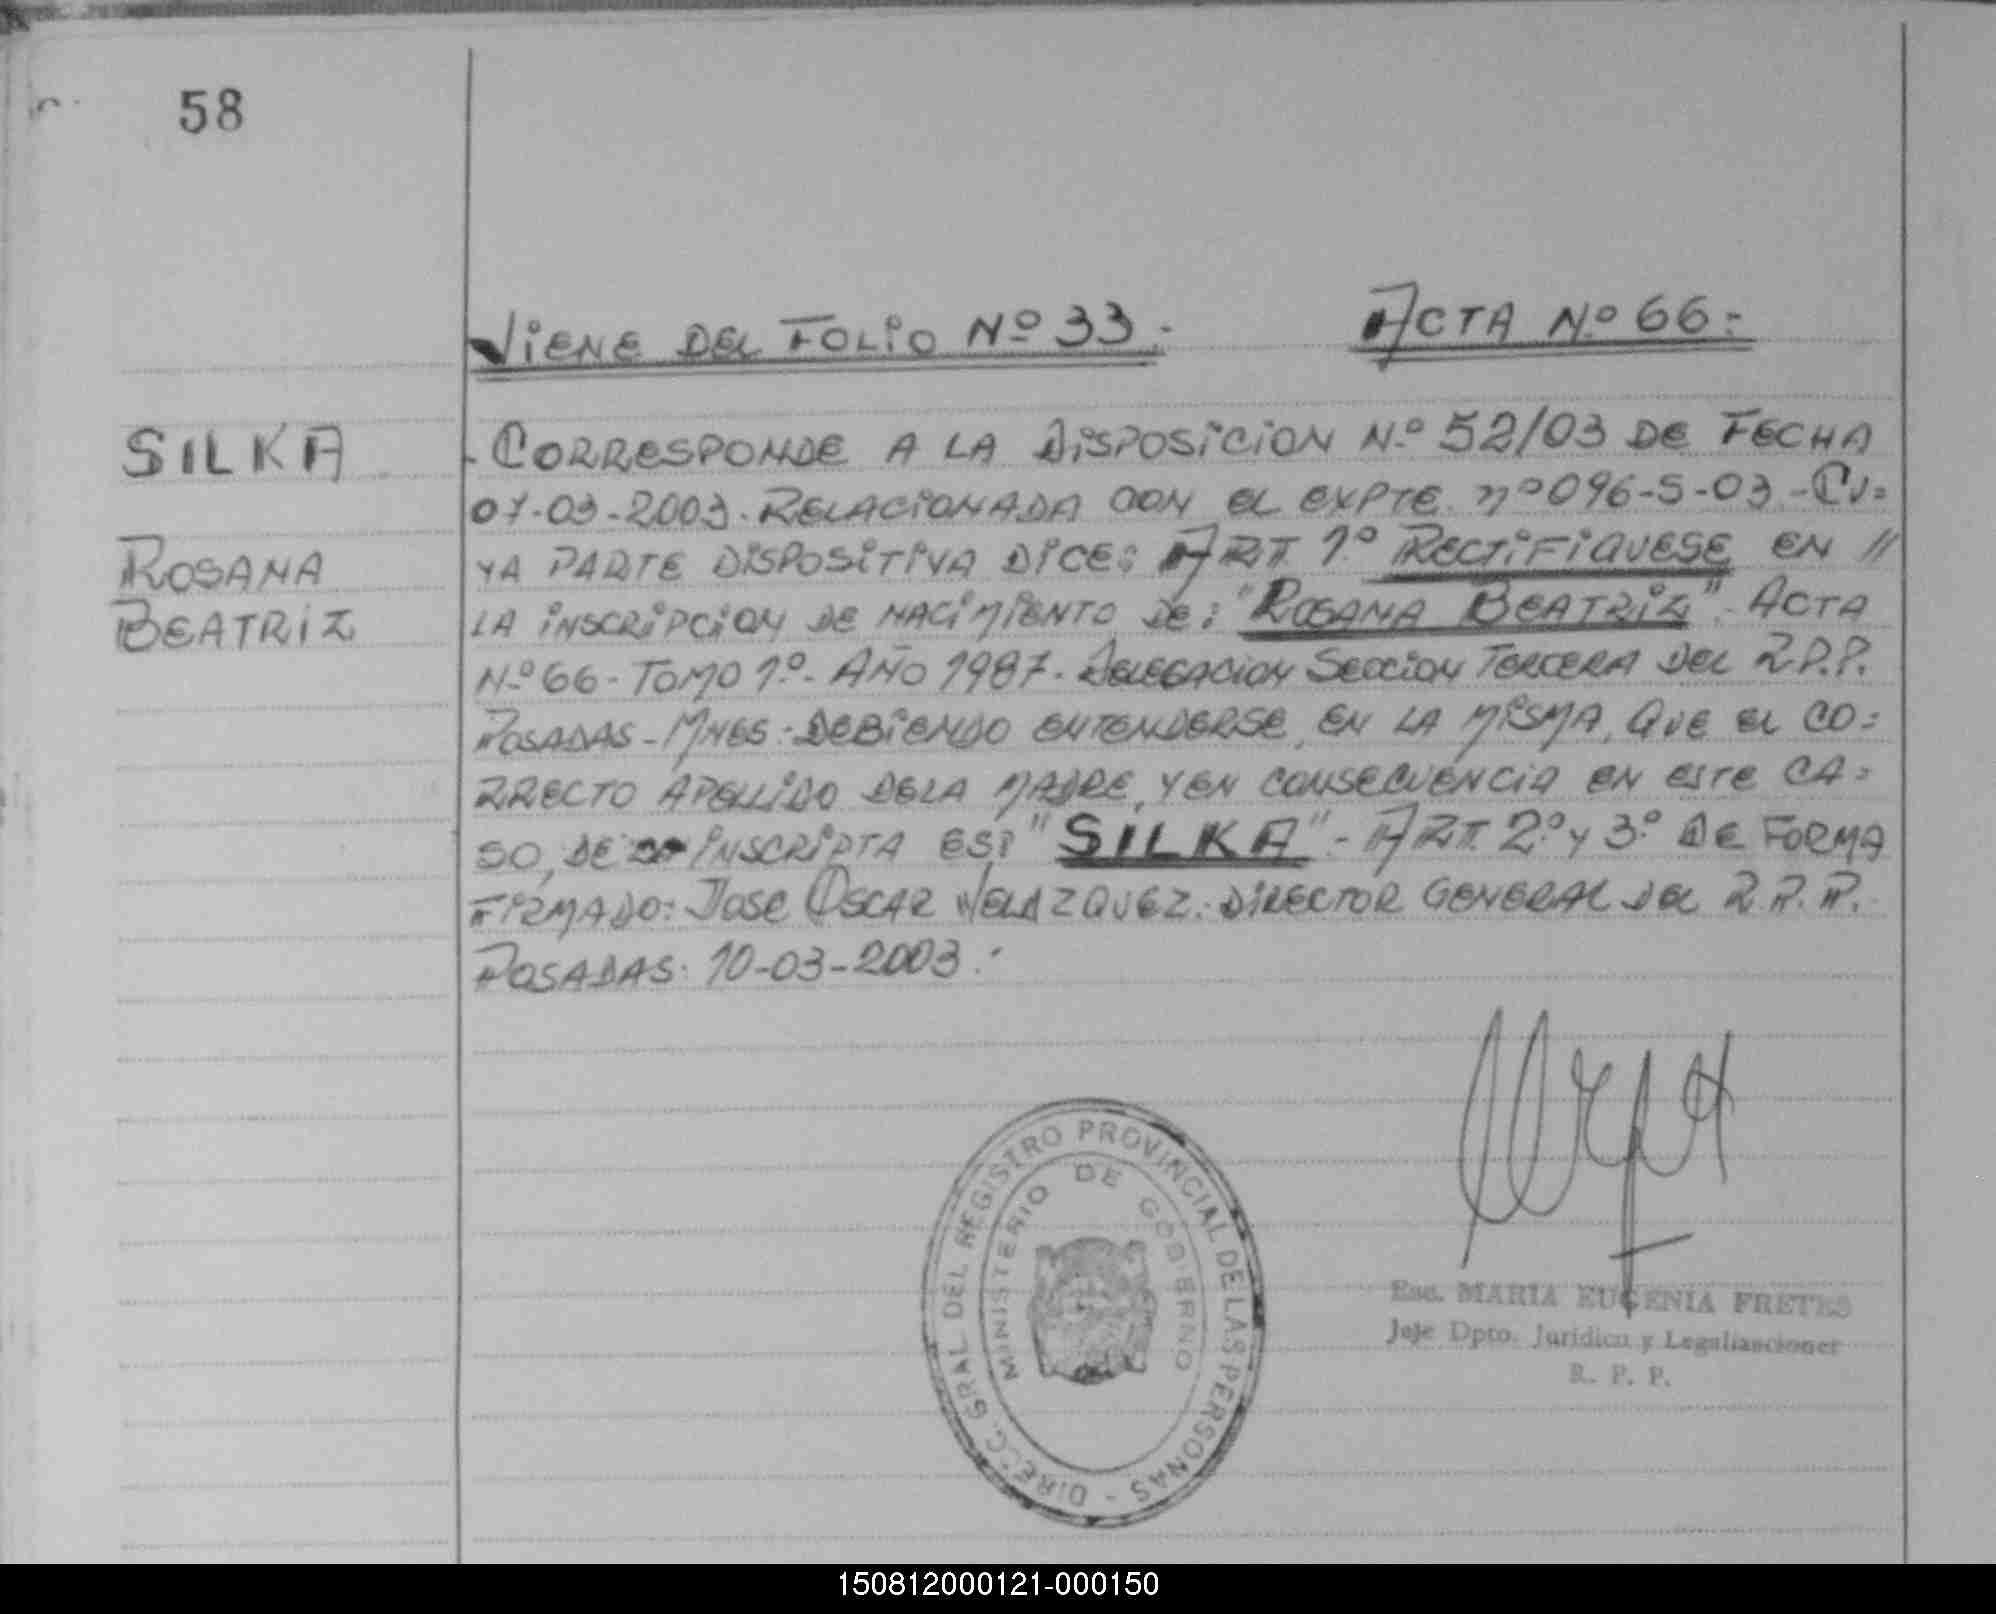 58
VIENE DEL FOLIO Nº 33.-
ACTA Nº 66=
SILKA
ROSANA
BEATRIZ
- CORRESPONDE A LA DISPOSICION Nº 52/03 DE FECHA
07-03-2003. RELACIONADA CON EL EXPTE. nº 096-S-03.- CU=
YA PARTE DISPOSITIVA DICE: ART. 1º RECTIFIQUESE EN //
LA INSCRIPCION DE NACIMIENTO DE: "ROSANA BEATRIZ". ACTA
Nº 66- TOMO 1º- AÑO 1987- DELEGACION SECCION TERCERA DEL R.P.P.
POSADAS- MNES.- DEBIENDO ENTENDERSE, EN LA MISMA, QUE EL CO=
RRECTO APELLIDO DE LA MADRE, Y EN CONSECUENCIA EN ESTE CA=
SO, DE INSCRIPTA ES: "SILKA".- ART. 2º Y 3º DE FORMA
FIRMADO: JOSE OSCAR VELAZQUEZ. DIRECTOR GENERAL DEL R.P.P.
POSADAS: 10-03-2003.-
DIRECC. GRAL DEL REGISTRO PROVINCIAL DE LAS PERSONAS -
MINISTERIO DE GOBIERNO
Esc. MARIA EUGENIA FRETES
Jefe Dpto. Juridico y Legalizaciones
R. P. P.
150812000121-000150